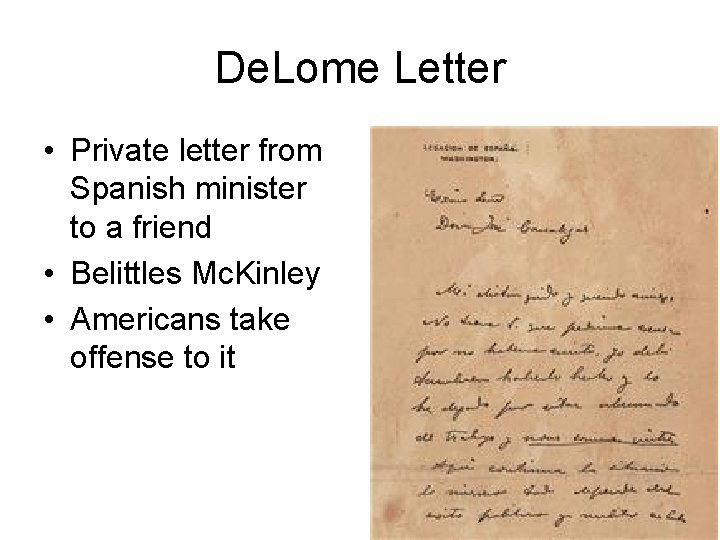 De.Lome Letter
• Private letter from
Spanish minister
to a friend
• Belittles Mc.Kinley
• Americans take
offense to it
LEGACION DE ESPAÑA
WASHINGTON
Mi distinguido y querido amigo,
No tiene V. que pedirme
por no haberme escrito, yo debí
haberlo hecho y lo
he dejado por estar abrumado
de trabajo y
Aquí continua la situación
lo mismo todo depende del